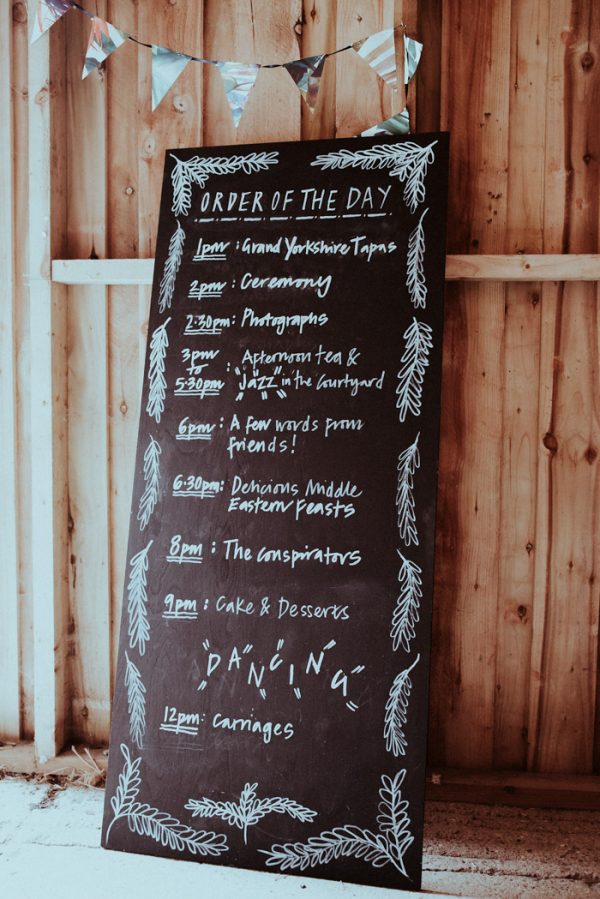 ORDER OF THE DAY
1pm : Grand Yorkshire Tapas
2pm : Ceremony
2.30pm : Photographs
3pm to 5.30pm : Afternoon tea &
"JAZZ" in the Courtyard
6pm : A few words from
friends!
6.30pm : Delicious Middle
Eastern Feasts
8pm : The Conspirators
9pm : Cake & Desserts
DANCING
12pm : Carriages